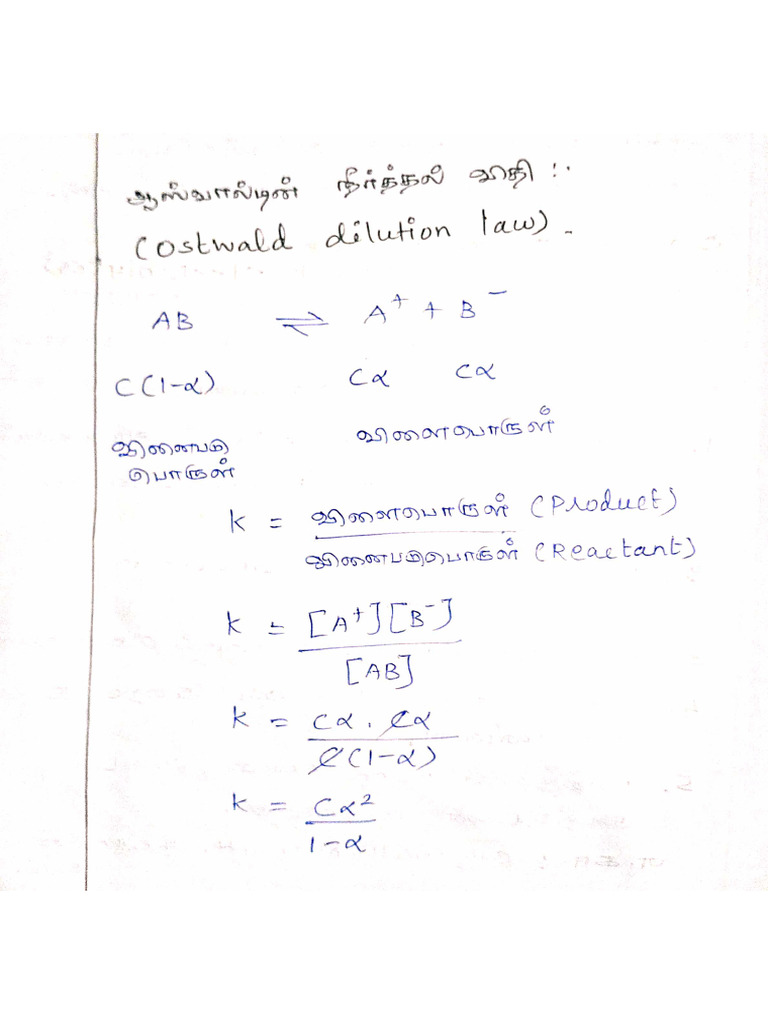 ஆஸ்வால்டின் நீர்த்தல் விதி :.
(Ostwald dilution law) -
AB ⇌ A⁺ + B⁻
C(1-α) Cα Cα
வினைபடு விளைபொருள்
பொருள்
k = விளைபொருள் (Product)
வினைபடுபொருள் (Reactant)
k = [A⁺][B⁻]
[AB]
k = Cα . Cα
C(1-α)
k = Cα²
1-α